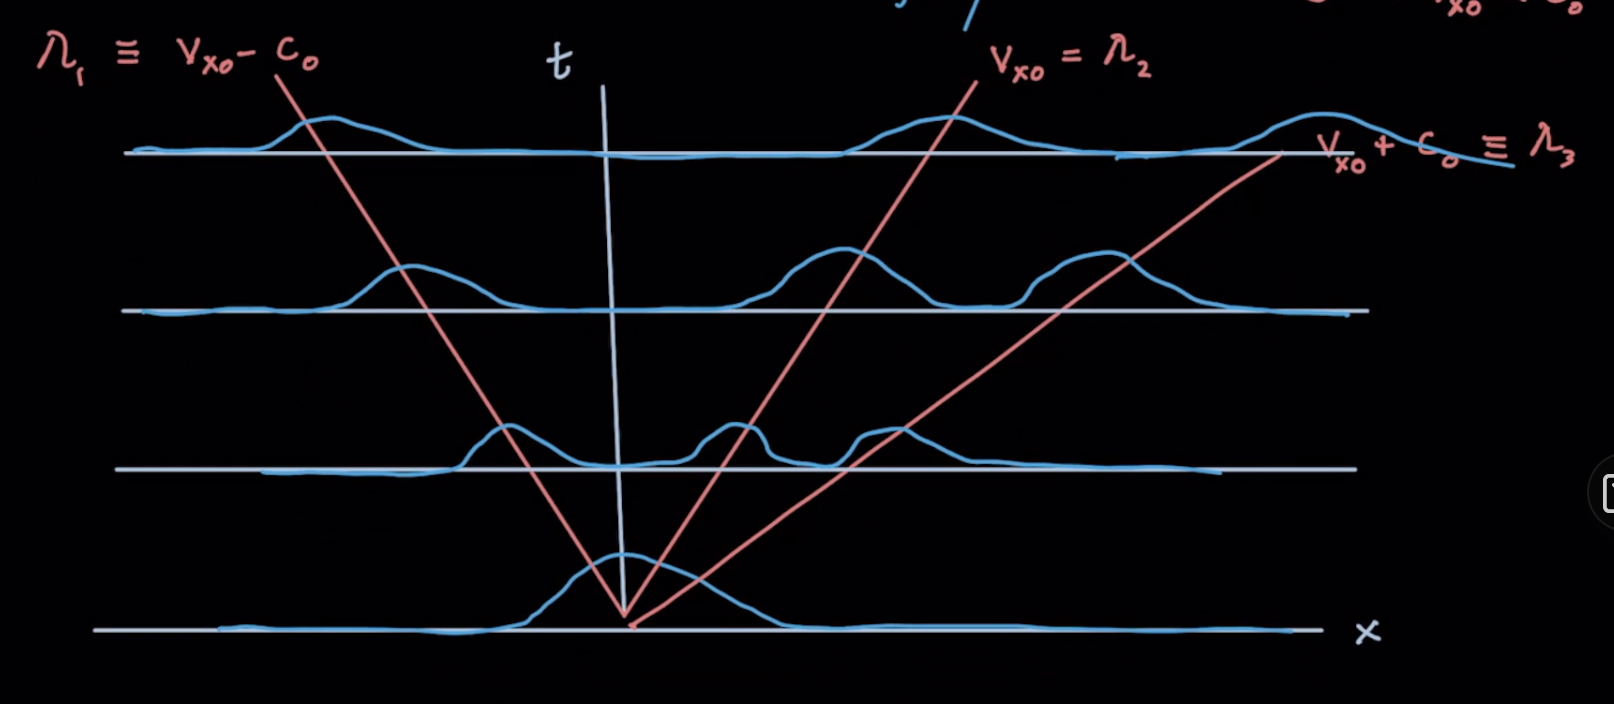 λ₁ ≡ Vₓ₀ - C₀
t
Vₓ₀ = λ₂
Vₓ₀ + C₀ ≡ λ₃
x